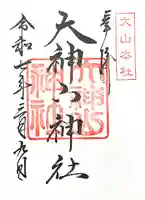 奉拝
大山本社
天神山神社
令和七年三月九日